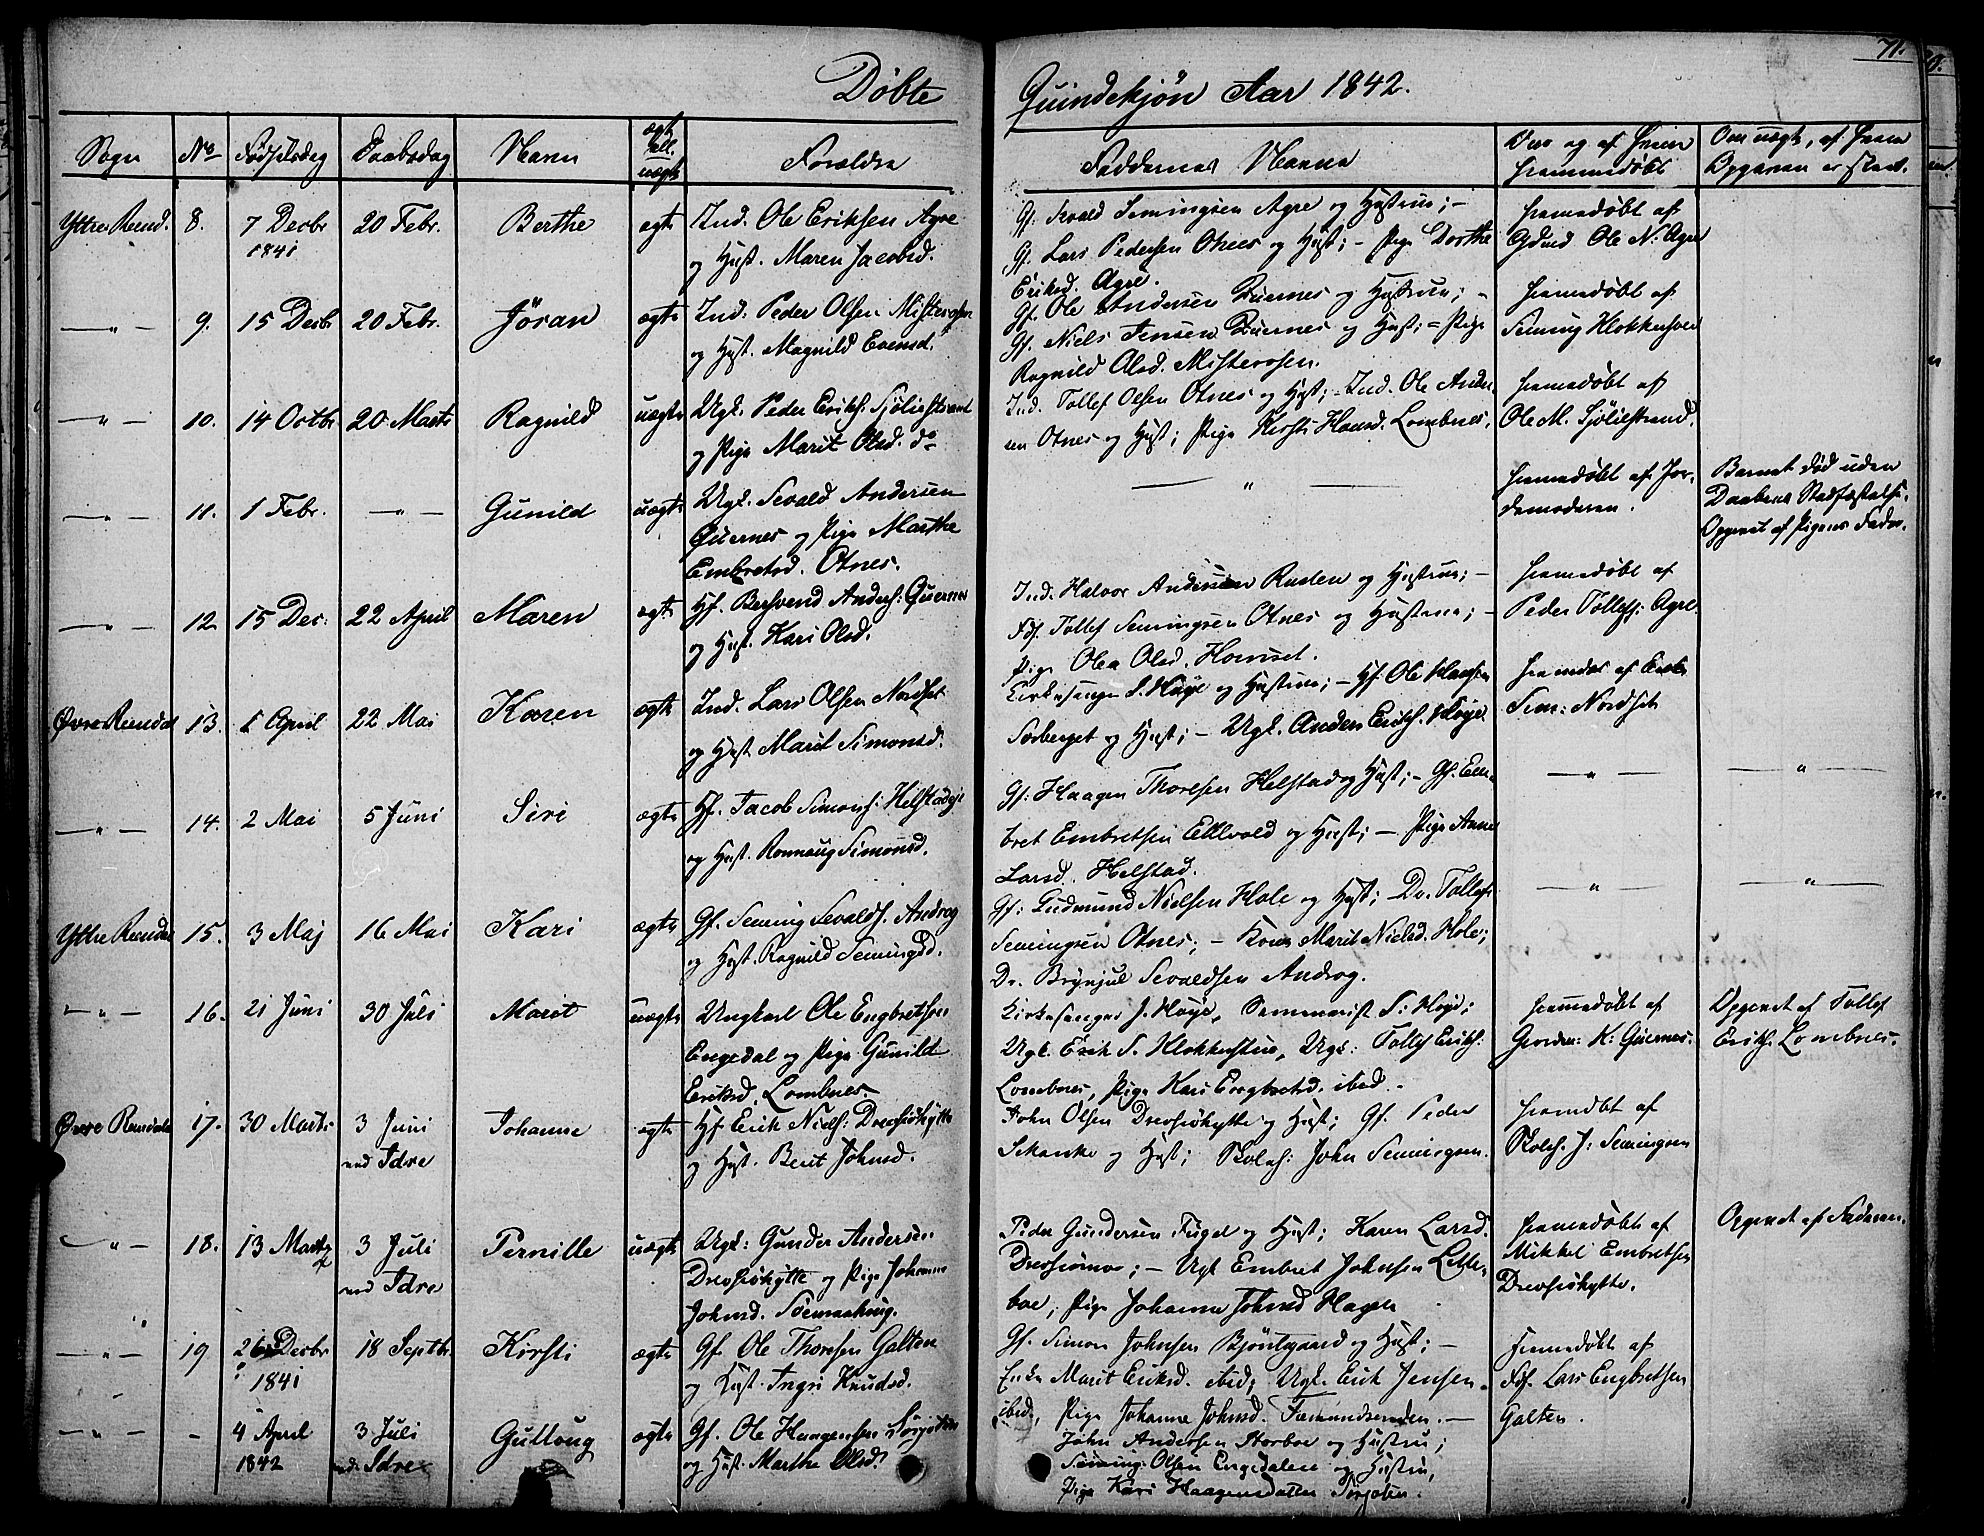 71.
Döbte Quindekjön Aar 1842.
Sogn No Födselsdag Daabsdag Navn ægte ell. uægte Forældre Faddernes Navne Om og af hvem hjemmedöbt Om uægte, af hvem Opgaven er skeet.
Yttre Rend. 8. 7 Decbr 1841 20 Febr. Berthe ægte Ind. Ole Eriksen Agre
og Hust. Maren Jacobsd.
Gf. Sevald Semingsen Agre og Hustrue; –
Gf. Lars Pedersen Otnes og Hust; – Pige Dorthe
Eriksd. Agre.
hjemmedöbt af
Gdmd Ole N: Agre
–"– 9. 15 Decbr 20 Febr. Jöran ægte Ind. Peder Olsen Misterosen
og Hust. Magnild Evensd.
Gf. Ole Andersen Quernes og Hustrue; –
Gf. Niels Jensen Quernes og Hust; – Pige
Ragnild Olsd. Misterosen.
hjemmedöbt af
Seming Klokkerhoel
–"– 10. 14 Octbr 20 Marts Ragnild uægte Ugk. Peder Eriks: Sjöliestrand
og Pige Marit Olsd. do
Ind. Tollef Olsen Otnes og Hust; – Ind. Ole Ander-
sen Otnes og Hust; Pige Kirsti Hansd. Lombnes.
hjemmedöbt af
Ole M. Sjöliestrand.
–"– 11. 1 Febr. –"– Gunild uægte Ugk. Sevald Andersen
Quernes og Pige Marthe
Embretsd. Otnes.
–"–
hjemmedöbt af Jor-
demoderen.
Barnet död uden
Daabens Stadfæstelse.
Opgivet af Pigens Fader.
–"– 12. 15 Dec: 22 April Maren ægte Hf. Bersvend Anders: Quernes
og Hust. Kari Olsd.
Ind. Halvor Andersen Rusten og Hustrue; –
Fdf. Tollef Semingsen Otnes og Hustrue; –
Pige Olea Olsd. Hornset.
hjemmedöbt af
Peder Tollefs: Agre.
Övre Rendal 13. 1 April 22 Mai Karen ægte Ind. Lars Olsen Nordset
og Hust Marit Simonsd.
Kirkesanger J. Höye og Hustrue; – Hf. Ole Hansen
Sorberget og Hust; – Ugk. Anders Eriks. Höye
hjemdöbt af
Sim: Nordset
–"– 14. 2 Mai 5 Juni Siri ægte Hf. Jacob Simons: Helstadeje
og Hust. Ronnaug Simonsd.
Gf: Haagen Thoresen Helstad og Hust; – Gf. Em-
bret Embretsen Ellevold og Hust; – Pige Anne
Larsd. Helstad.
–"– –"–
Yttre Rendal 15. 3 Maj 16 Mai Kari ægte Gf. Seming Sevalds. Androg
og Hust. Ragnild Semingsd.
Gf: Gudmund Nielsen Hole og Hust; Dr. Tollef
Semingsen Otnes; – Kone Marit Nielsd. Hole;
Dr. Brynjul Sevaldsen Androg.
–"– –"–
–"– 16. 21 Juni 30 Juli Marit uægte Ungkarl Ole Engbretsen
Engedal og Pige Gunild
Eriksd. Lombnes.
Kirkesanger J. Höye, Seminarist S: Höye;
Ugk. Erik S. Klokkerstue, Ugk: Tollef Eriks:
Lombnes, Pige Kari Engbretsd. ibid.
hjemmedöbt af
K: Quernes.
Opgivet af Tollef
Eriks. Lombnes.
Övre Rendal 17. 30 Marts 3 Juni ved Idre Johanne ægte Hf. Erik Niels: Drevsiöhytte
og Hust. Berit Johnsd.
John Olsen Drevsiöhytte og Hust; Gf. Peder
Skanke og Hust; Skoleh: John Semingsen.
hjemdöbt af
Skoleh. J: Semingsen
–"– 18. 13 Marts 3 Juli ved Idre Pernille uægte Ugk: Gunder Andersen
Drevsiöhytte og Pige Johanne
Johnsd.
Peder Gundersen Fuget og Hust; Karen Larsd.
Drevsiömoe; – Ugk Embret Johnsen Lille-
boe; Pige Johanne Johnsd Hagen
hjemmedöbt af
Mikkel Embretsen
Drevsiöhytte.
Opgivet af Faderen.
–"– 19 26 Decbr 1841 18 Septbr. Kirsti ægte Gf. Ole Thoresen Galten
og Hust. Ingri Knudsd.
Gf. Simon Johnsen Bjöntegaard og Hust; –
Enke Marit Eriksd. ibid; Ugk. Erik Jensen
ibid, Pige Johanne Johnsd. Fæmundsenden. –
hjemmedöbt af
Fdf. Lars Engbretsen
Galten.
–"– – 4 April 1842 3 Juli ved Idre Gulloug ægte Gf. Ole Haagensen Sörjoten
og Hust. Marthe Olsd.
John Andersen Storboe og Hustru;
Seming Olsen Engedalen og Hustru,
Pige Kari Haagensdatter Sörjoten.